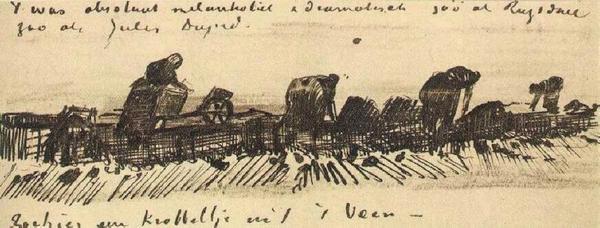 't was absoluut melankoliek & dramatisch zoo als Ruysdael
zoo als Jules Dupré.
Zoo hier een krabbeltje uit 't Veen —